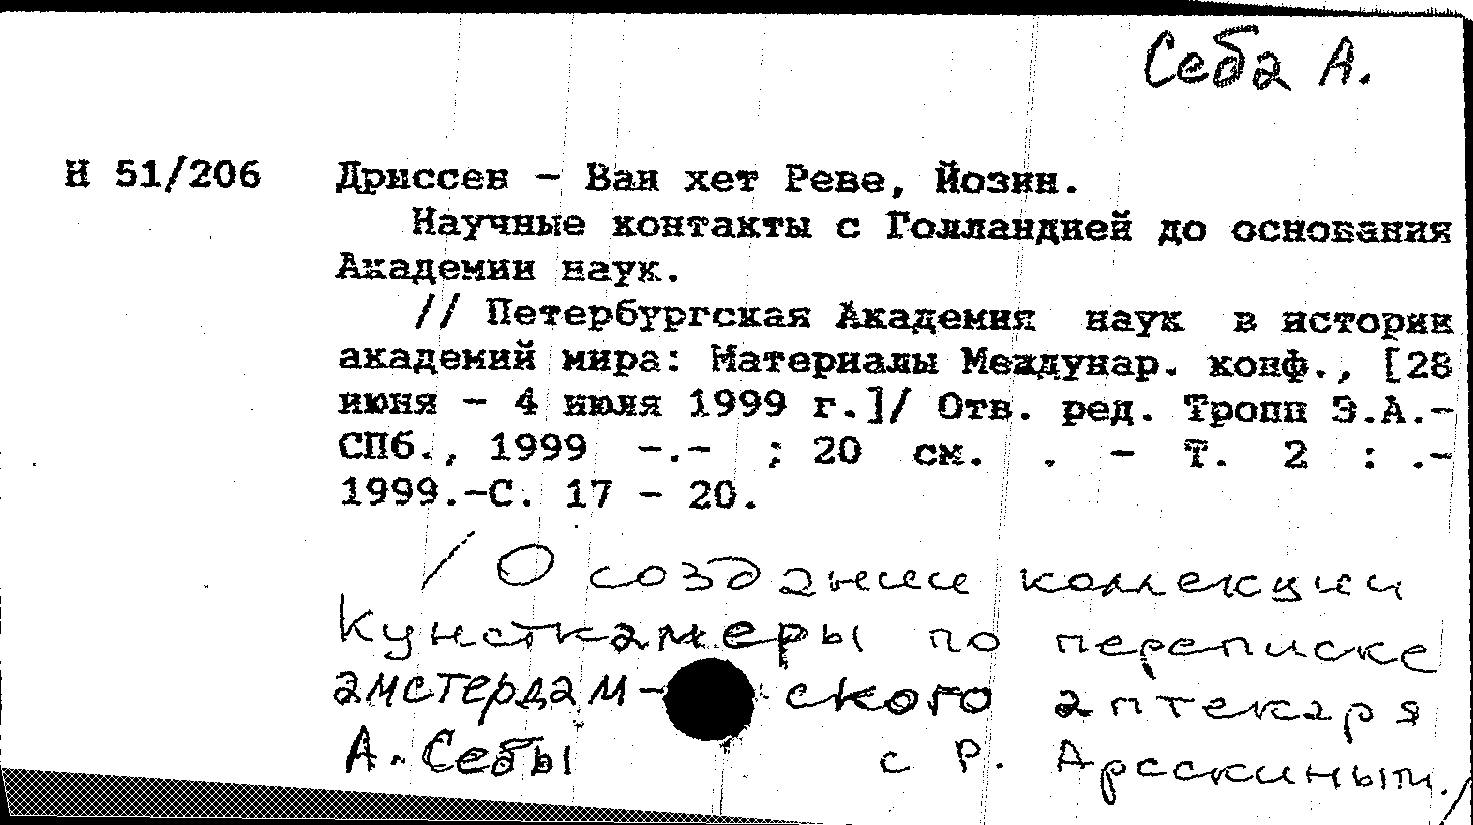 Себа А.
Н 51/206 Дриссен - Ван хет Реве, Йозин.
Научные контакты с Голландией до основания
Академии наук.
// Петербургская Академия наук в истории
академий мира: Материалы Междунар. конф., [28
июня - 4 июля 1999 г.]/ Отв. ред. Тропп Э.А.-
СПб., 1999 -.- ; 20 см. . - Т. 2 : .-
1999.-С. 17 - 20.
/ О создании коллекции
Кунсткамеры по переписке
амстердам- ского аптекаря
А. Себы с Р. Арескиным./